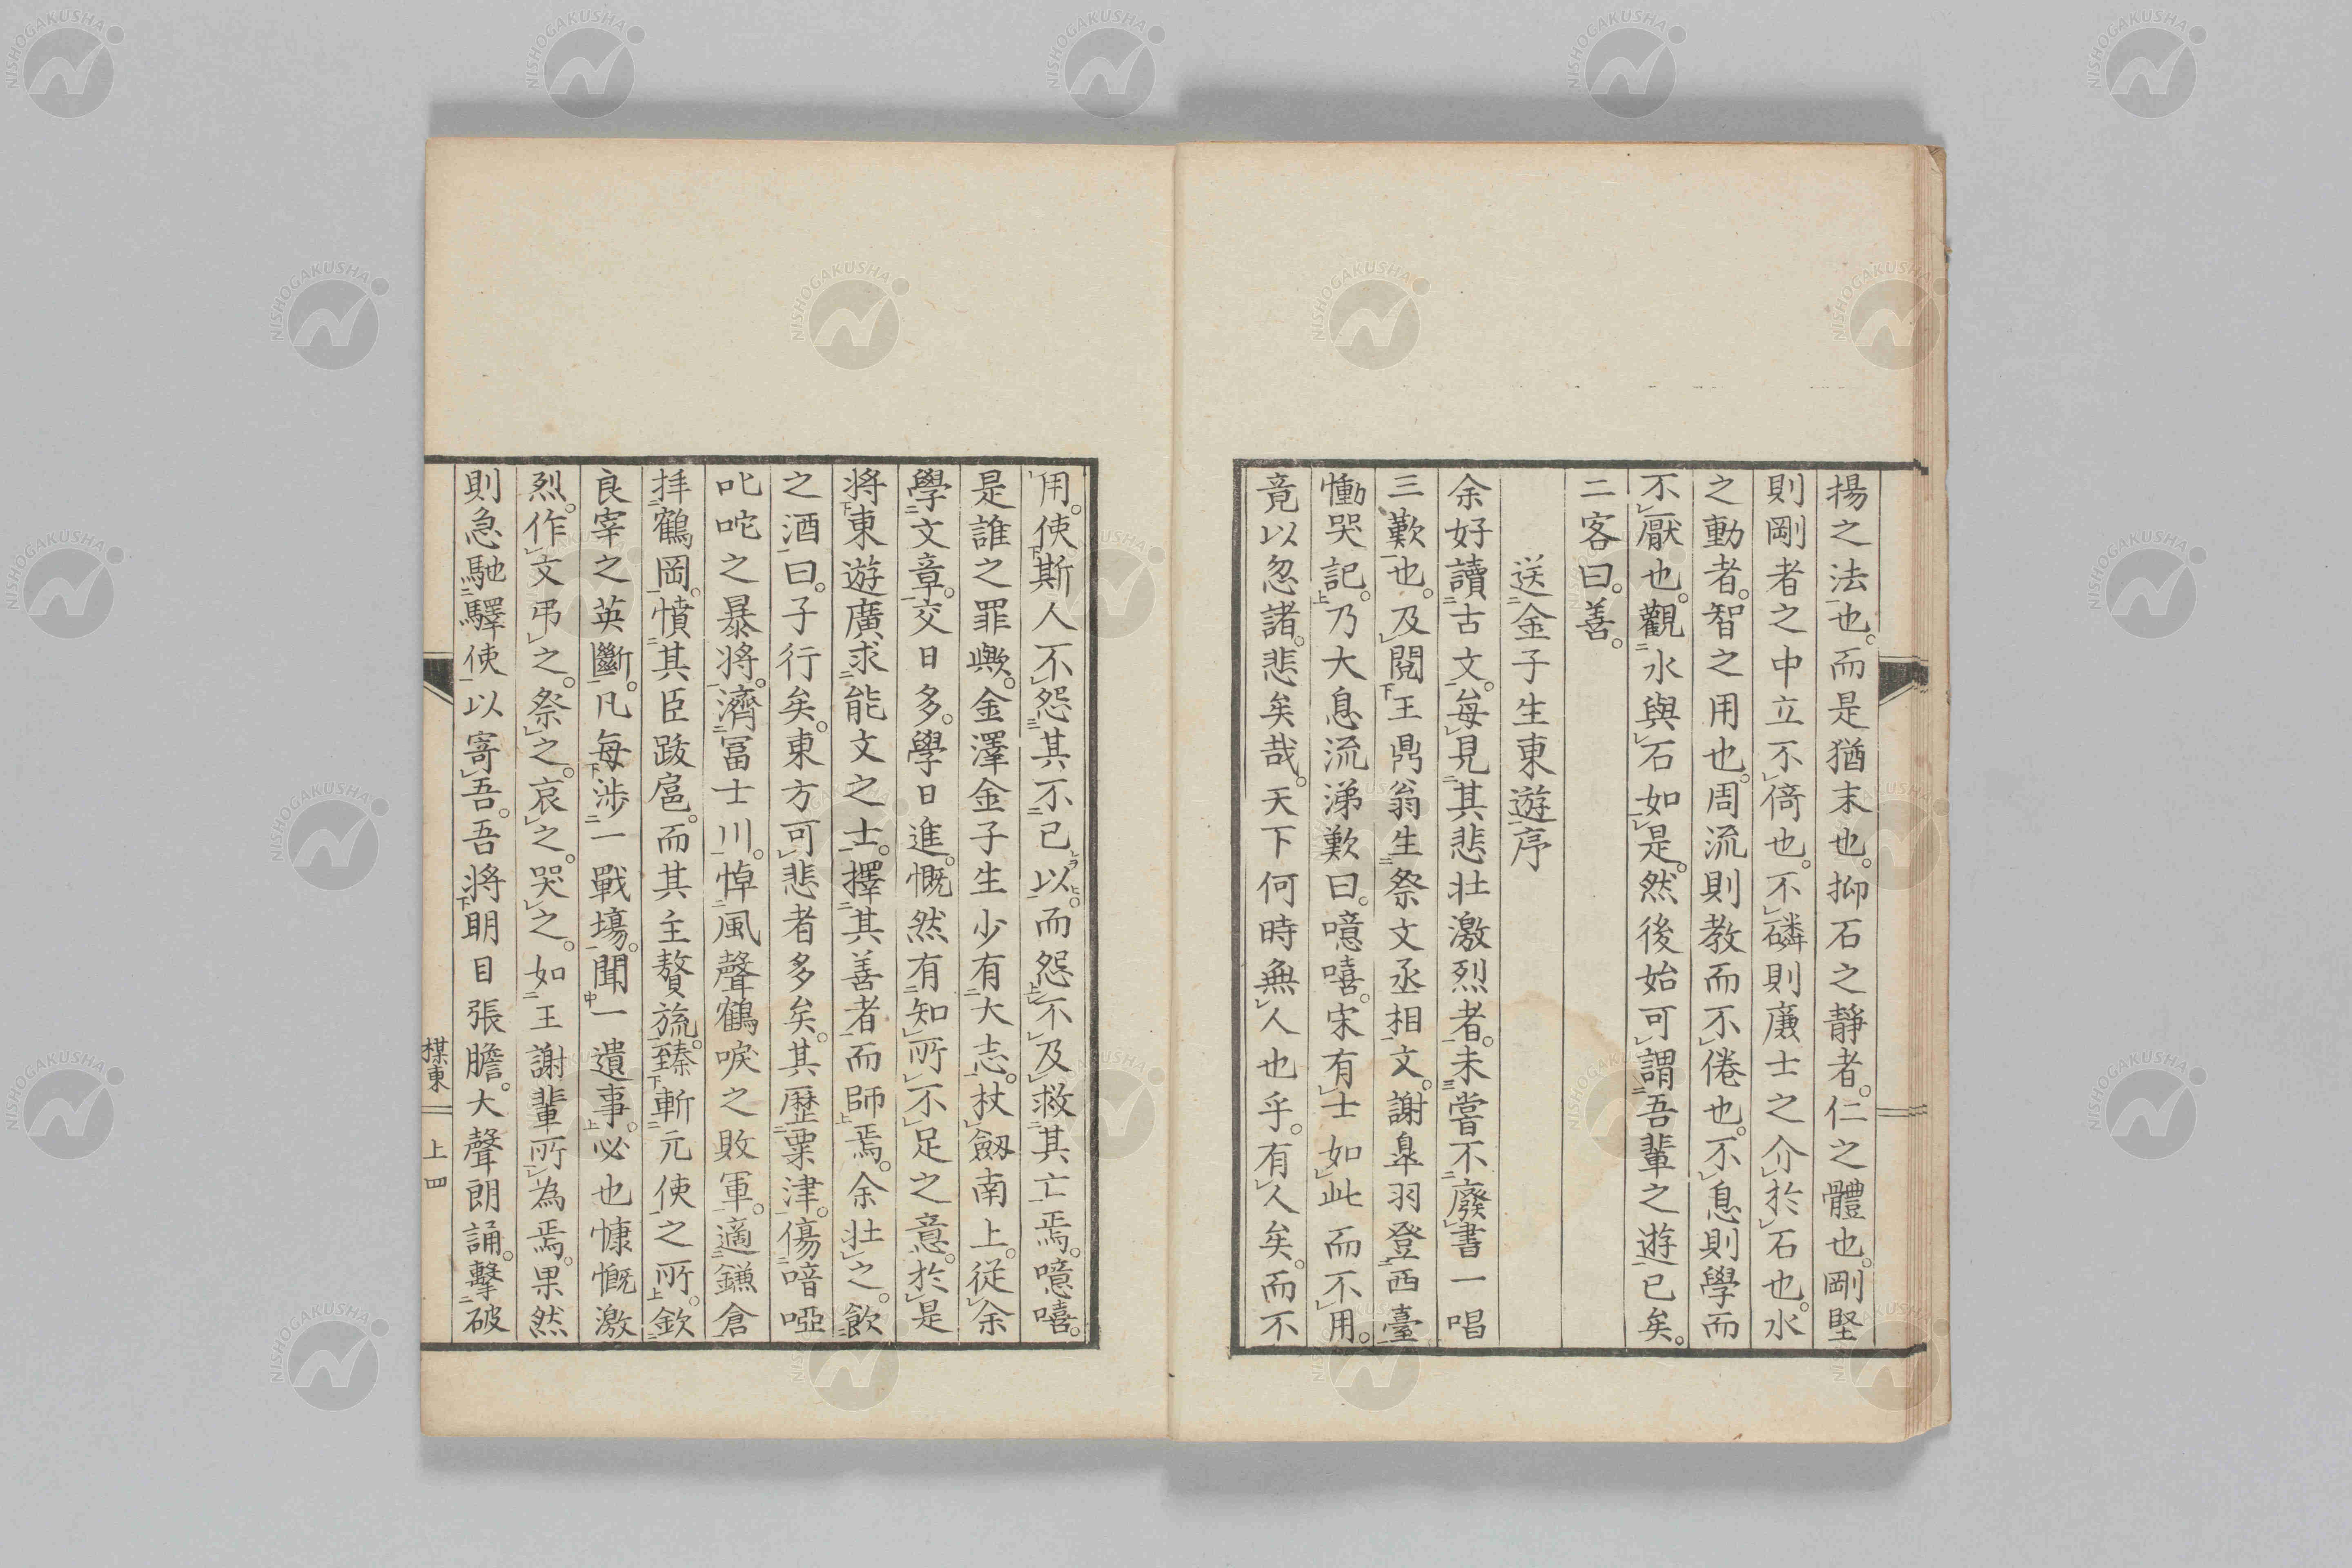 揚之法也。而是猶末也。抑石之靜者。仁之體也。剛堅
則剛者之中立不倚也。不磷則廉士之介於石也。水
之動者。智之用也。周流則教而不倦也。不息則學而
不厭也。觀水與石如是。然後始可謂吾輩之遊已矣。
二客曰。善。
送金子生東遊序
余好讀古文。每見其悲壯激烈者。未嘗不廢書一唱
三歎也。及閱王鼎翁生祭文丞相文。謝皐羽登西臺
慟哭記。乃大息流涕歎曰。噫嘻。宋有士如此而不用。
竟以忽諸。悲矣哉。天下何時無人也乎。有人矣。而不
用。使斯人不怨其不已以。而怨不及救其亡焉。噫嘻。
是誰之罪歟。金澤金子生少有大志。杖劔南上。從余
學文章。交日多。學日進。慨然有知所不足之意。於是
將東遊廣求能文之士。擇其善者而師焉。余壯之。飲
之酒。曰。子行矣。東方可悲者多矣。其歷粟津。傷喑啞
叱咜之暴將。濟冨士川。悼風聲鶴唳之敗軍。適鎌倉
拝鶴岡。憤其臣跋扈。而其主贅旒。臻斬元使之所。欽
良宰之英斷。凡每涉一戰塲。聞一遺事。必也慷慨激
烈。作文弔之。祭之。哀之。哭之。如王謝輩所為焉。果然
則急馳驛使以寄吾。吾將明目張膽。大聲朗誦。擊破
楳東 上 四
NISHOGAKUSHA